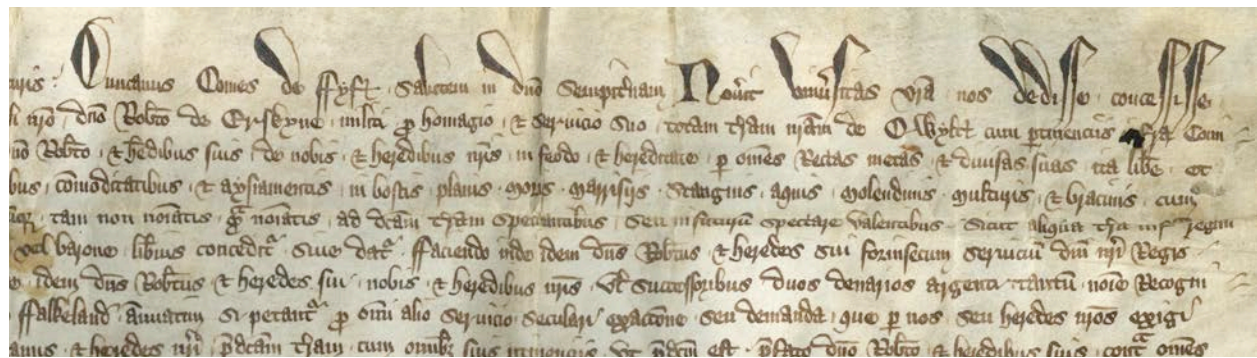 uris · Duncanus Comes de Fyff · Salutem in dño sempit'nam Nou'it vniu'sitas vr̃a nos dedisse · concessisse ·
nr̃o · dño Rob̃to de Erskyne · militi p homagio · & seruicio suo · totam t'ram nr̃am de cum p'tinenciis infra Comi
no Rob̃to · & h'edibus suis · de nobis · & heredibus nr̃is · in feodo · & hereditate · p om̃es Rectas metas · & diuisas suas ita lib'e · et
bus · com̃oditatibus · & aysiamentis · in boscis planis moris marrisijs · Stangnis · aquis · Molendinis · Multuris · & bracinis · cum
tam non no'iatis · q̃ no'iatis · ad dc̃am t'ram spectantibus · seu in futurũ spectare valentibus · Sicut aliqua t'ra inf' regnũ
vel barone · lib'ius conceditr̃ · siue datr̃ · ffaciendo inde idem dñs Rob̃tus · & heredes sui forinsecum seruiciũ dñi nr̃i Regis ·
idem dñs Rob̃tus · & heredes sui · nobis · & heredibus nr̃is · vl' Successoribus duos denarios argenti tantũ · no'ie Recogni
ffalkeland añuatim si petantr̃ · p om̃i alio seruicio · seculari exacc̃one · seu demanda · que p nos seu heredes nr̃os exigi
amus · & heredes nr̃i · p'dc̃am t'ram · cum omĩbz suis vt p'dc̃m est · p'fato dño Rob̃to · & heredibus suis · cont̃ om̃es